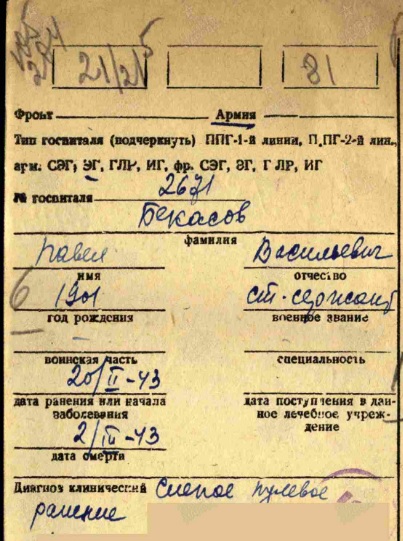 21/2 5 81
Фронт Армия
Тип госпиталя (подчеркнуть) ППГ-1-й линии, П.ПГ-2-й лин.,
арм. СЭГ, ЭГ, ГЛР, ИГ, фр. СЭГ, ЭГ, ГЛР, ИГ
№ госпиталя 2671
Бекасов
фамилия
Павел Васильевич
имя отчество
1901 ст. сержант
год рождения военное звание
воинская часть специальность
20/II-43
дата ранения или начала дата поступления в дан-
заболевания ное лечебное учреж-
дение
2/III-43
дата смерти
Диагноз клинический Слепое пулевое
ранение